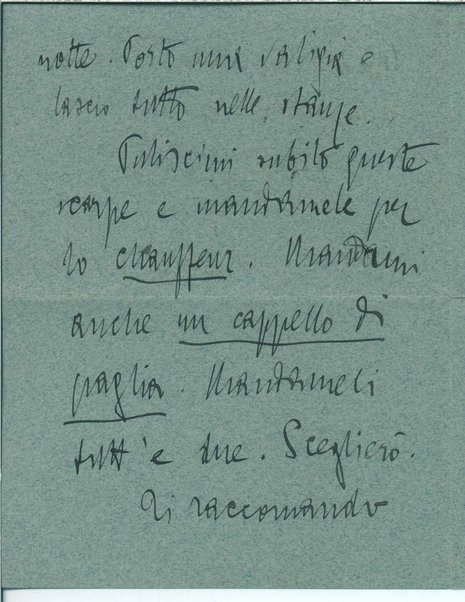 notte. Porto una valigia e
lascio tutto nelle stanze.
Puliscimi subito queste
scarpe e mandamele per
lo chauffeur. Mandami
anche un cappello di
paglia. Mandameli
tutt'e due. Sceglierò.
Ti raccomando